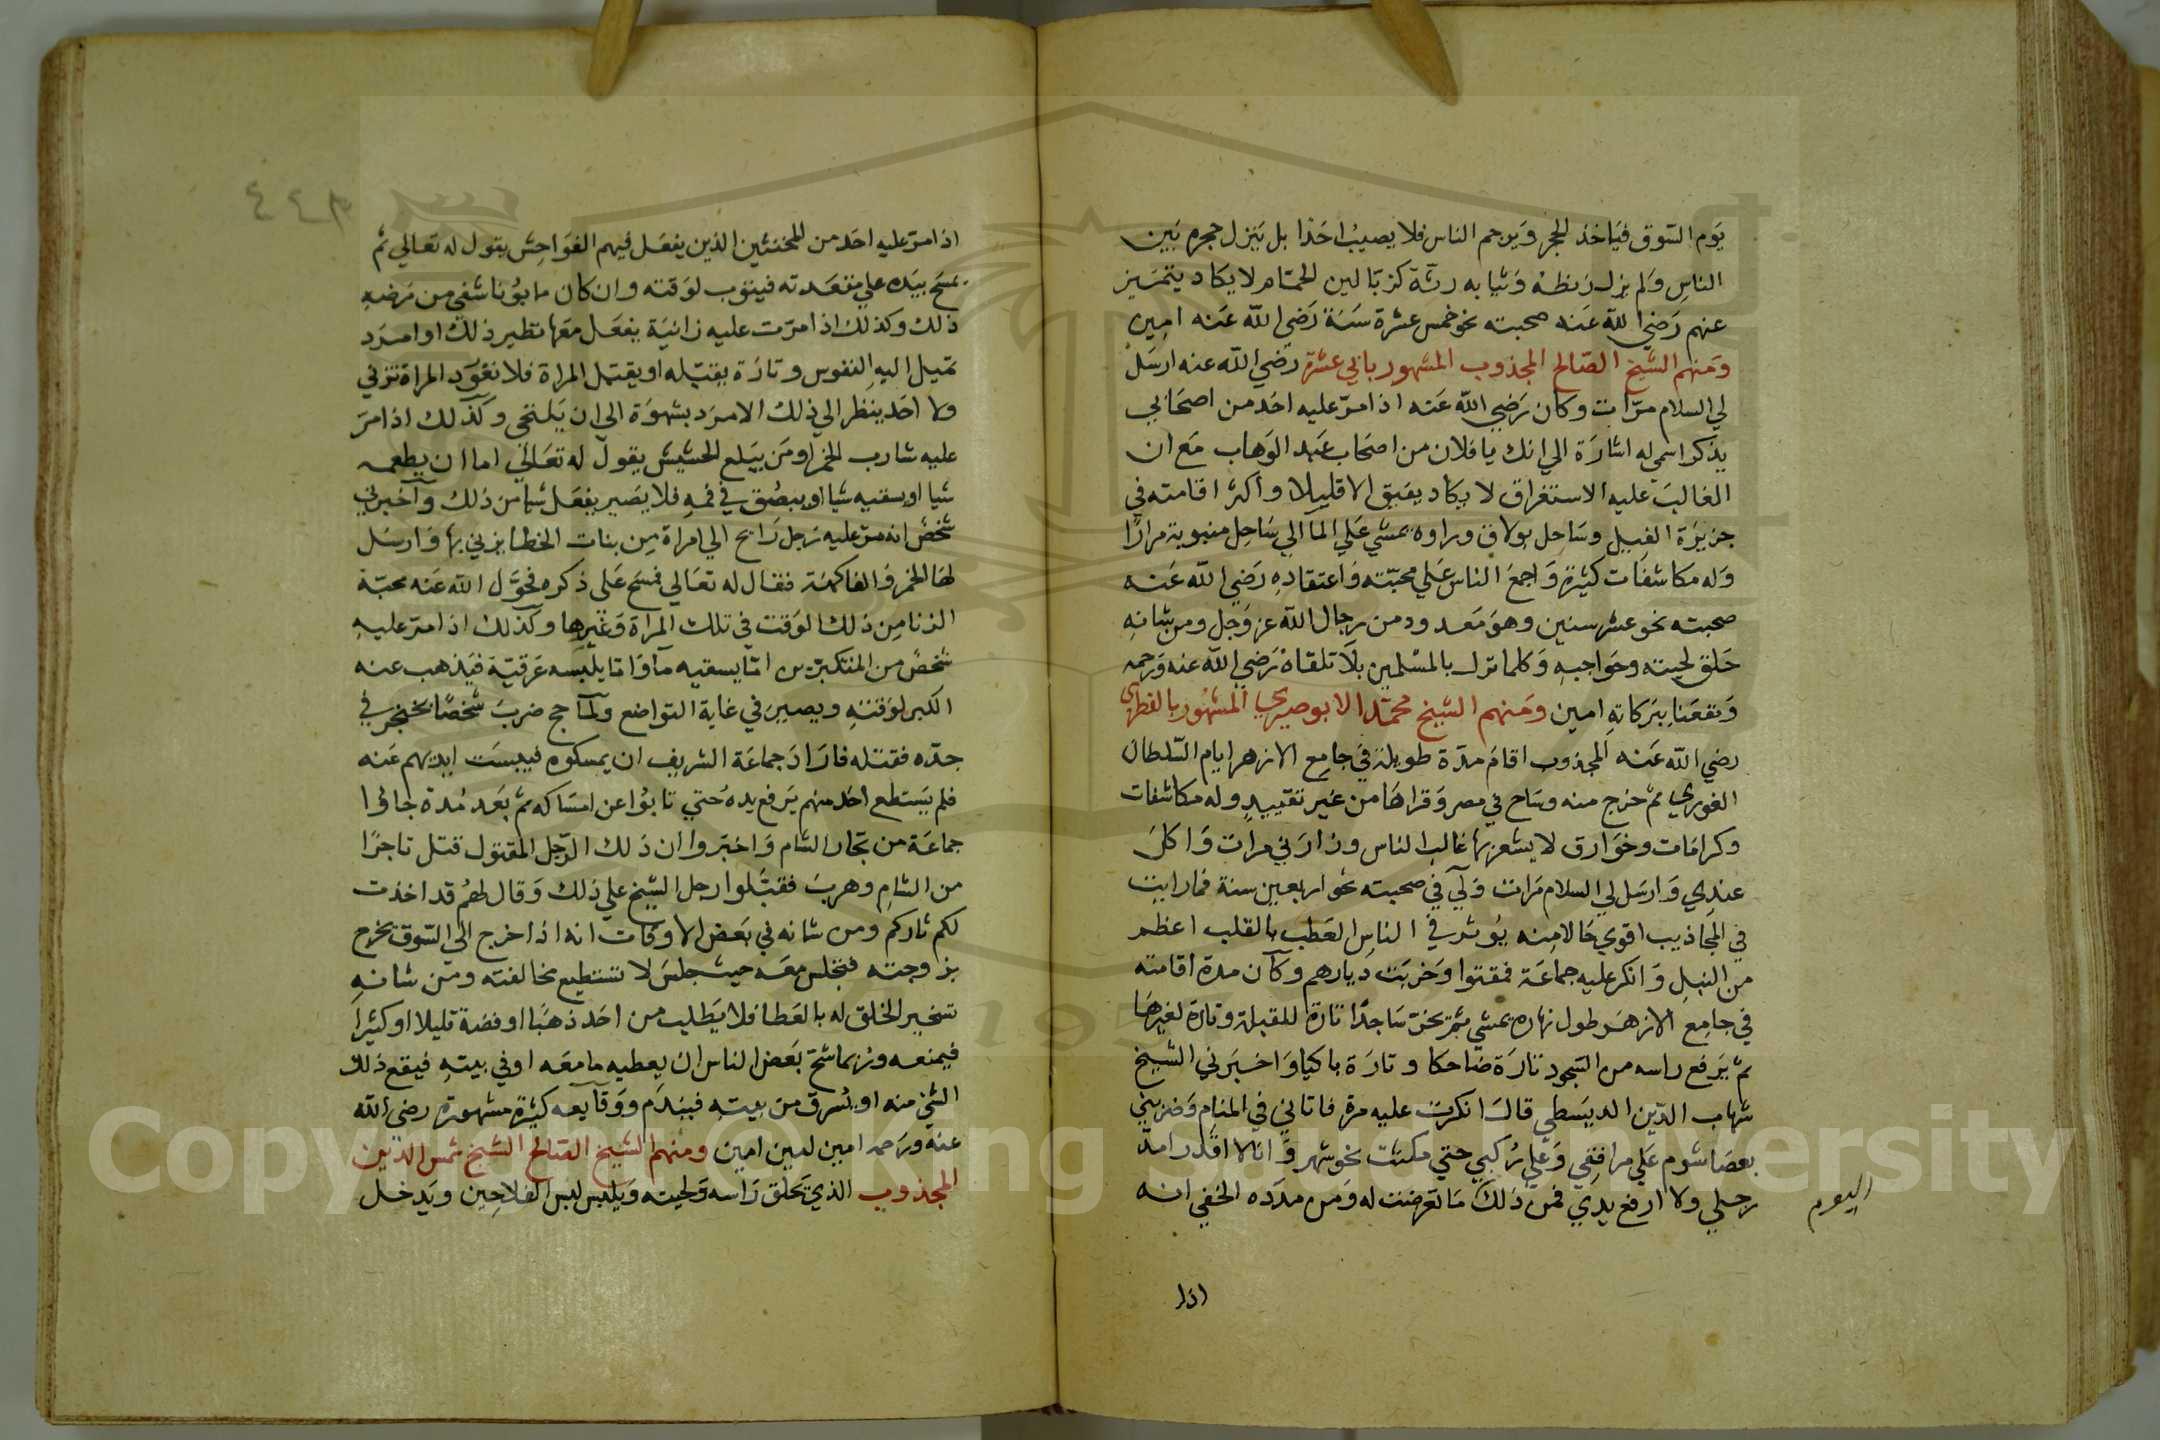 يوم السوق فياخذ الحجر ويرجم الناس فلا يصيب احدا بل ينزل حجره بين
الناس ولم يزل وثيابه رثة كزبالين الحمام لا يكاد يتميز
عنهم رضي الله عنه صحبته نحو خمس عشرة سنة رضي الله عنه امين
ومنهم الشيخ الصالح المجذوب المشهور بابي عشرة رضي الله عنه ارسل
لي السلام مرات وكان رضي الله عنه اذا مر عليه احد من اصحابي
يذكر اسمي له اشارة الي انك يا فلان من اصحاب عبد الوهاب مع ان
الغالب عليه الاستغراق لا يكاد يفيق الا قليلا واكثر اقامته في
جزيرة الفيل وساحل بولاق وراوه يمشي علي الما الي ساحل منبوبة مرارا
وله مكاشفات كثيرة واجمع الناس علي محبته واعتقاده رضي الله عنه
صحبته نحو عشر سنين وهو معدود من رجال الله عز وجل ومن شانه
حلق لحيته وحواجبه وكلما نزل بالمسلمين بلا تلقاه رضي الله عنه ورحمه
ونفعنا ببركاته امين ومنهم الشيخ محمد الابوصيري المشهور بالفطري
رضي الله عنه المجذوب اقام مدة طويلة في جامع الازهر ايام السلطان
الغوري ثم خرج منه وساح في مصر وقراها من غير تقييد وله مكاشفات
وكرامات وخوارق لا يشعر بها غالب الناس وزارني مرات واكل
عندي وارسل لي السلام مرات ولي في صحبته نحو اربعين سنة فما رايت
في المجاذيب اقوي حالا منه يوثر في الناس العطب بالقلب اعظم
من النبل وانكر عليه جماعة فمقتوا وخربت ديارهم وكان مدة اقامته
في جامع الازهر طول نهاره يمشي ثم يخر ساجدا تارة للقبلة وتارة لغيرها
ثم يرفع راسه من السجود تارة ضاحكا وتارة باكيا واخبرني الشيخ
شهاب الدين الديسطي قال انكرت عليه مرة فاتاني في المنام وضربني
بعصا شوم علي مرافقي وعلي ركبي حتي مكثت نحو شهر وانا لا اقدر امد
رجلي ولا ارفع يدي فمن ذلك اليوم ما تعرضت له ومن مدده الخفي انه
اذا
اذا مر عليه احد من المخنثين الذين يفعل فيهم الفواحش يقول له تعالي ثم
يمسح بيده علي مقعدته فيتوب لوقته وان كان مابونا شفي من مرضه
ذلك وكذلك اذا مرت عليه زانية يفعل معها نظير ذلك او امرد
تميل اليه النفوس وتارة يقبله او يقبل المراة فلا تعود المراة تزني
ولا احد ينظر الي ذلك الامرد بشهوة الي ان يلتحي وكذلك اذا مر
عليه شارب الخمر او من يبلع الحشيش يقول له تعالي اما ان يطعمه
شيا او يسقيه شيا او يبصق في فمه فلا يصير يفعل شيا من ذلك واخبرني
شخص انه مر عليه رجل رايح الي امراة من بنات الخطا يزني بها وارسل
لها الخمر والفاكهة فقال له تعالي فمسح علي ذكره فحول الله عنه محبة
الزنا من ذلك الوقت في تلك المراة وغيرها وكذلك اذا مر عليه
شخص من المتكبرين اما يسقيه ما واما يلبسه عرقية فيذهب عنه
الكبر لوقته ويصير في غاية التواضع ولما حج ضرب شخصا بخنجر في
جده فقتله فاراد جماعة الشريف ان يمسكوه فيبست ايديهم عنه
فلم يستطع احد منهم يرفع يده حتي تابوا عن امساكه ثم بعد مدة جاوا
جماعة من تجار الشام واخبروا ان ذلك الرجل المقتول قتل تاجرا
من الشام وهرب فقبلوا رجل الشيخ علي ذلك وقال لهم قد اخذت
لكم ثاركم ومن شانه في بعض الاوقات انه اذا خرج الي السوق يخرج
بزوجته فتجلس معه حيث جلس لا تستطيع مخالفته ومن شانه
تسخير الخلق له بالعطا فلا يطلب من احد ذهبا او فضة قليلا او كثيرا
فيمنعه وربما شح بعض الناس ان يعطيه ما معه او في بيته فيقع ذلك
الشي منه او يسرق من بيته فيندم ووقايعه كثيرة مشهورة رضي الله
عنه ورحمه امين امين امين ومنهم الشيخ الصالح الشيخ شمس الدين
المجذوب الذي يحلق راسه ولحيته ويلبس لبس الفلاحين ويدخل
Copyright © King Saud University